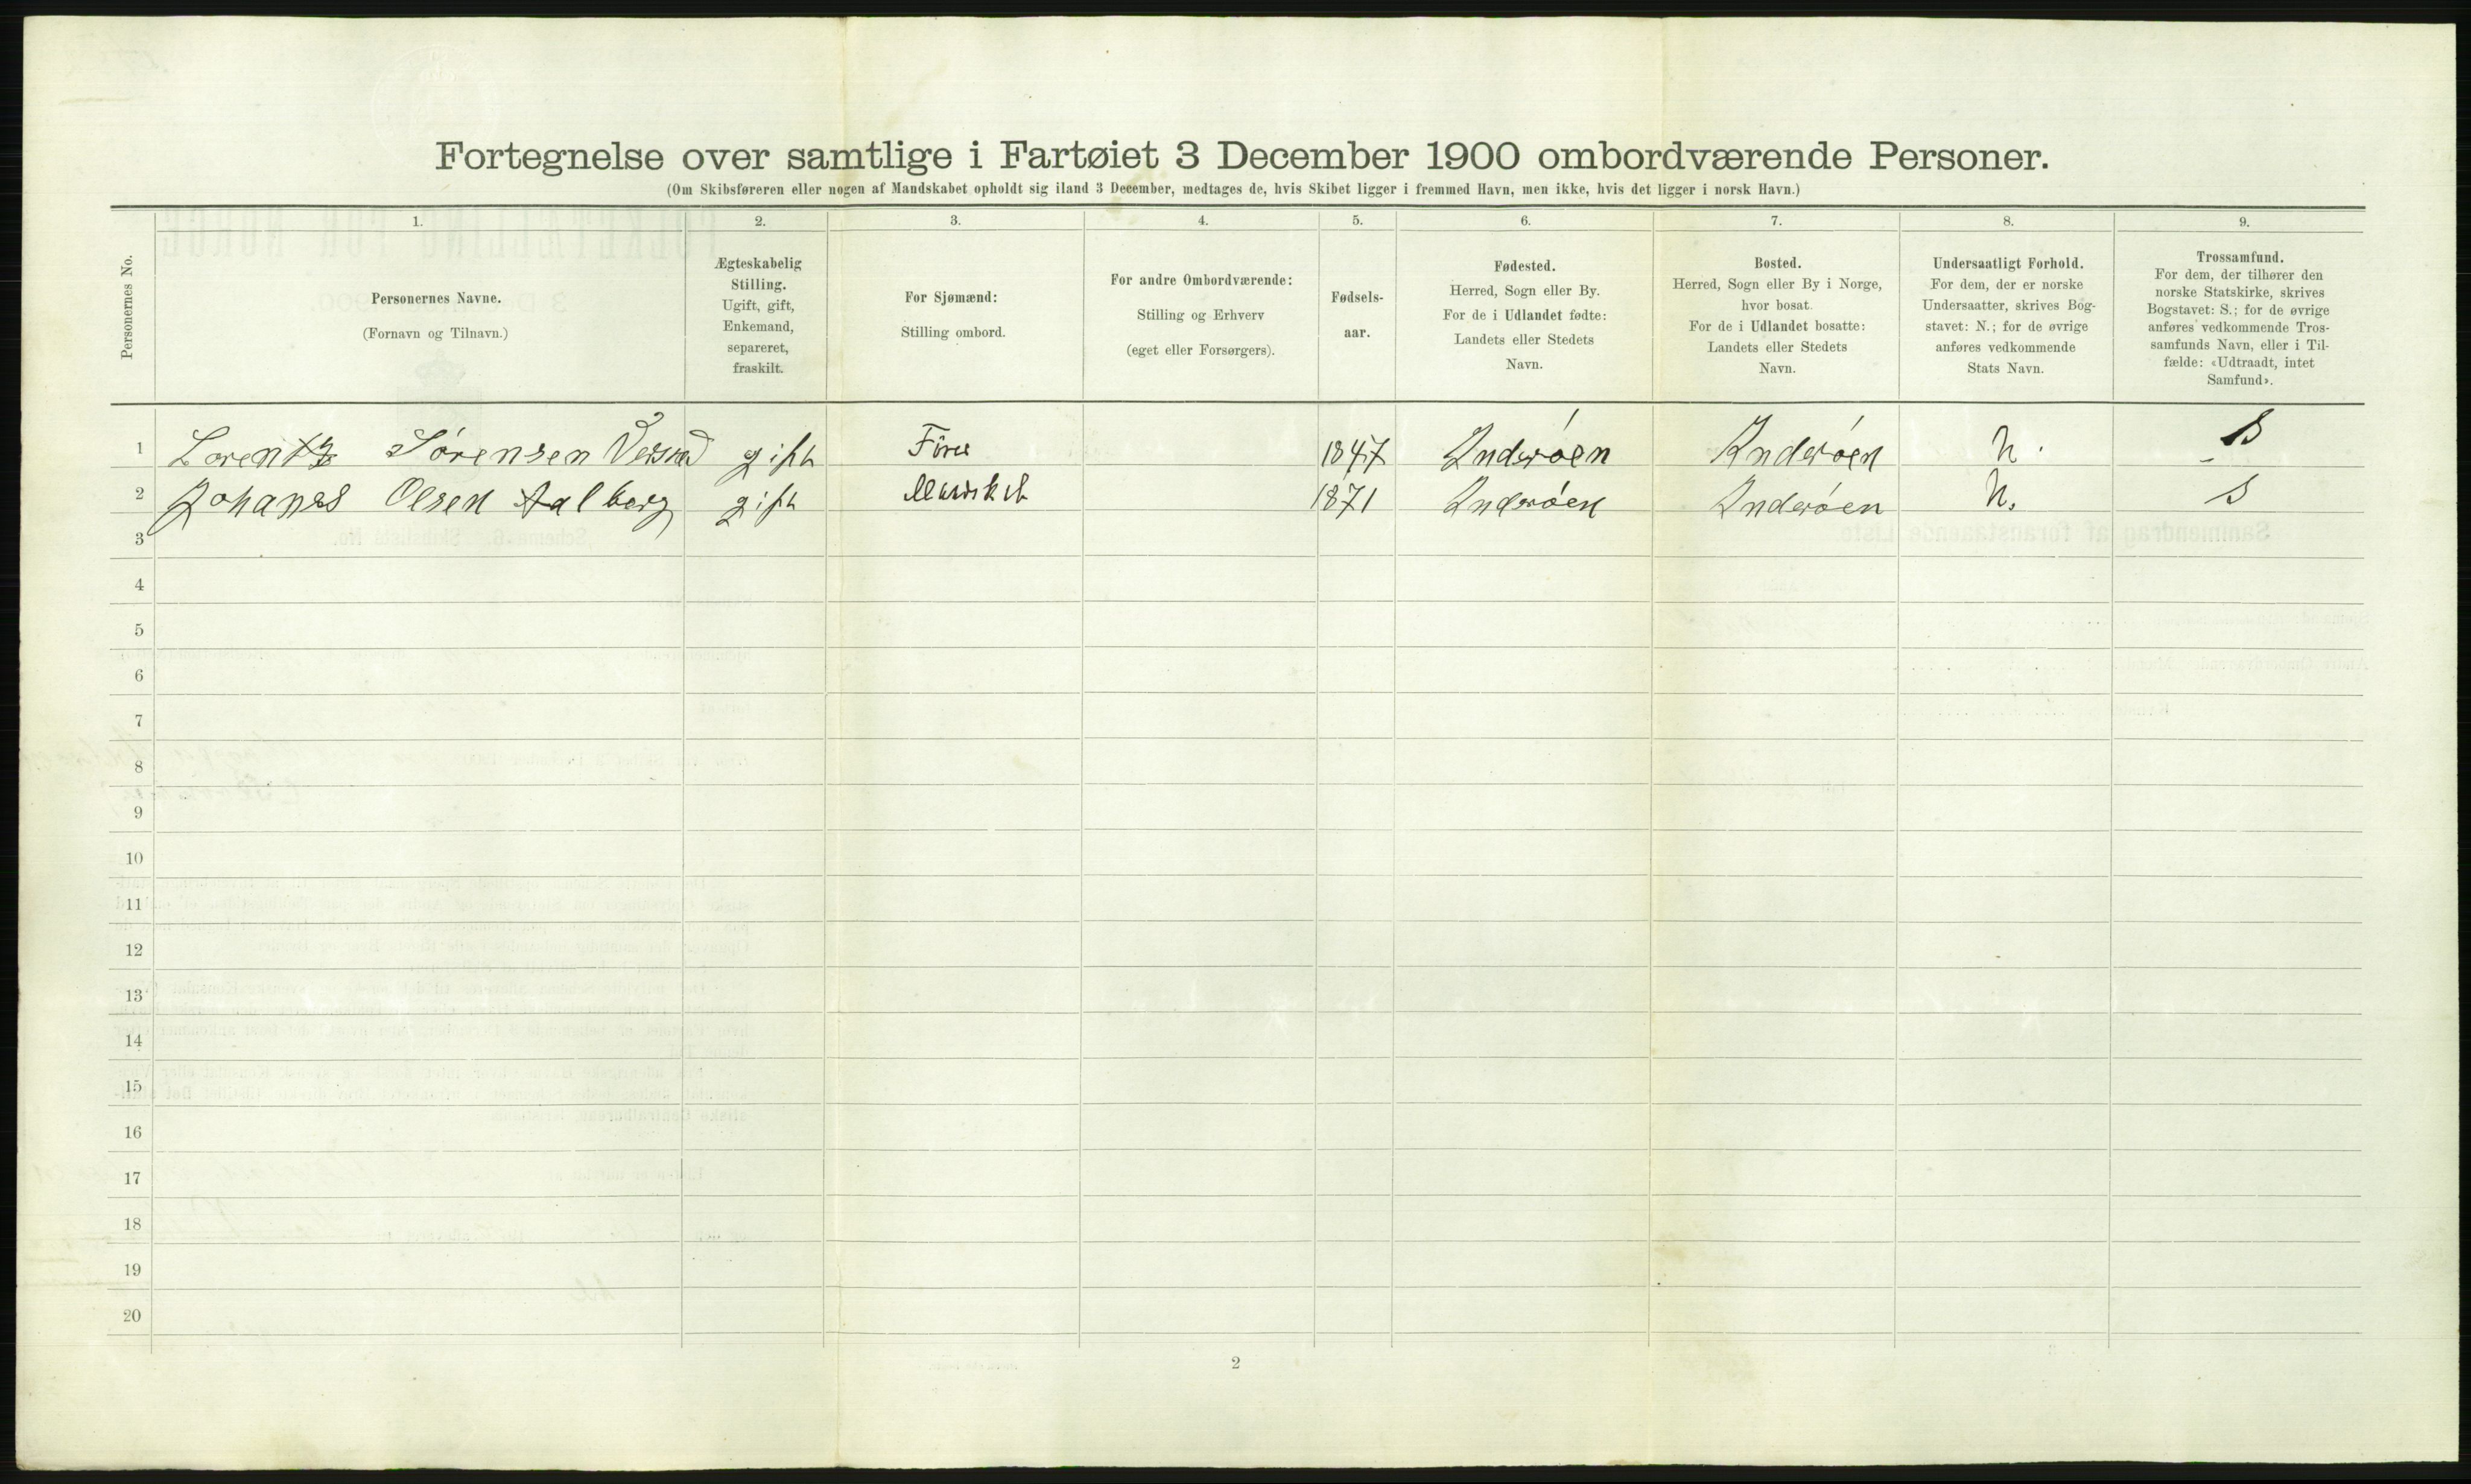 Fortegnelse over samtlige i Fartøiet 3 December 1900 ombordværende Personer.
(Om Skibsføreren eller nogen af Mandskabet opholdt sig iland 3 December, medtages de, hvis Skibet ligger i fremmed Havn, men ikke, hvis det ligger i norsk Havn.)
Personernes No.
1.
Personernes Navne.
(Fornavn og Tilnavn.)
2.
Ægteskabelig
Stilling.
Ugift, gift,
Enkemand,
separeret,
fraskilt.
3.
For Sjømænd:
Stilling ombord.
4.
For andre Ombordværende:
Stilling og Erhverv
(eget eller Forsørgers).
5.
Fødsels-
aar.
6.
Fødested.
Herred, Sogn eller By.
For de i Udlandet fødte:
Landets eller Stedets
Navn.
7.
Bosted.
Herred, Sogn eller By i Norge,
hvor bosat.
For de i Udlandet bosatte:
Landets eller Stedets
Navn.
8.
Undersaatligt Forhold.
For dem, der er norske
Undersaatter, skrives Bog-
stavet: N.; for de øvrige
anføres vedkommende
Stats Navn.
9.
Trossamfund.
For dem, der tilhører den
norske Statskirke, skrives
Bogstavet: S.; for de øvrige
anføres vedkommende Tros-
samfunds Navn, eller i Til-
fælde: «Udtraadt, intet
Samfund».
1 Lorentz Sørensen gift 1847 Inderøen Inderøen N. S
2 Johanes Olsen Aalberg gift 1871 Inderøen Inderøen N. S
3
4
5
6
7
8
9
10
11
12
13
14
15
16
17
18
19
20
2